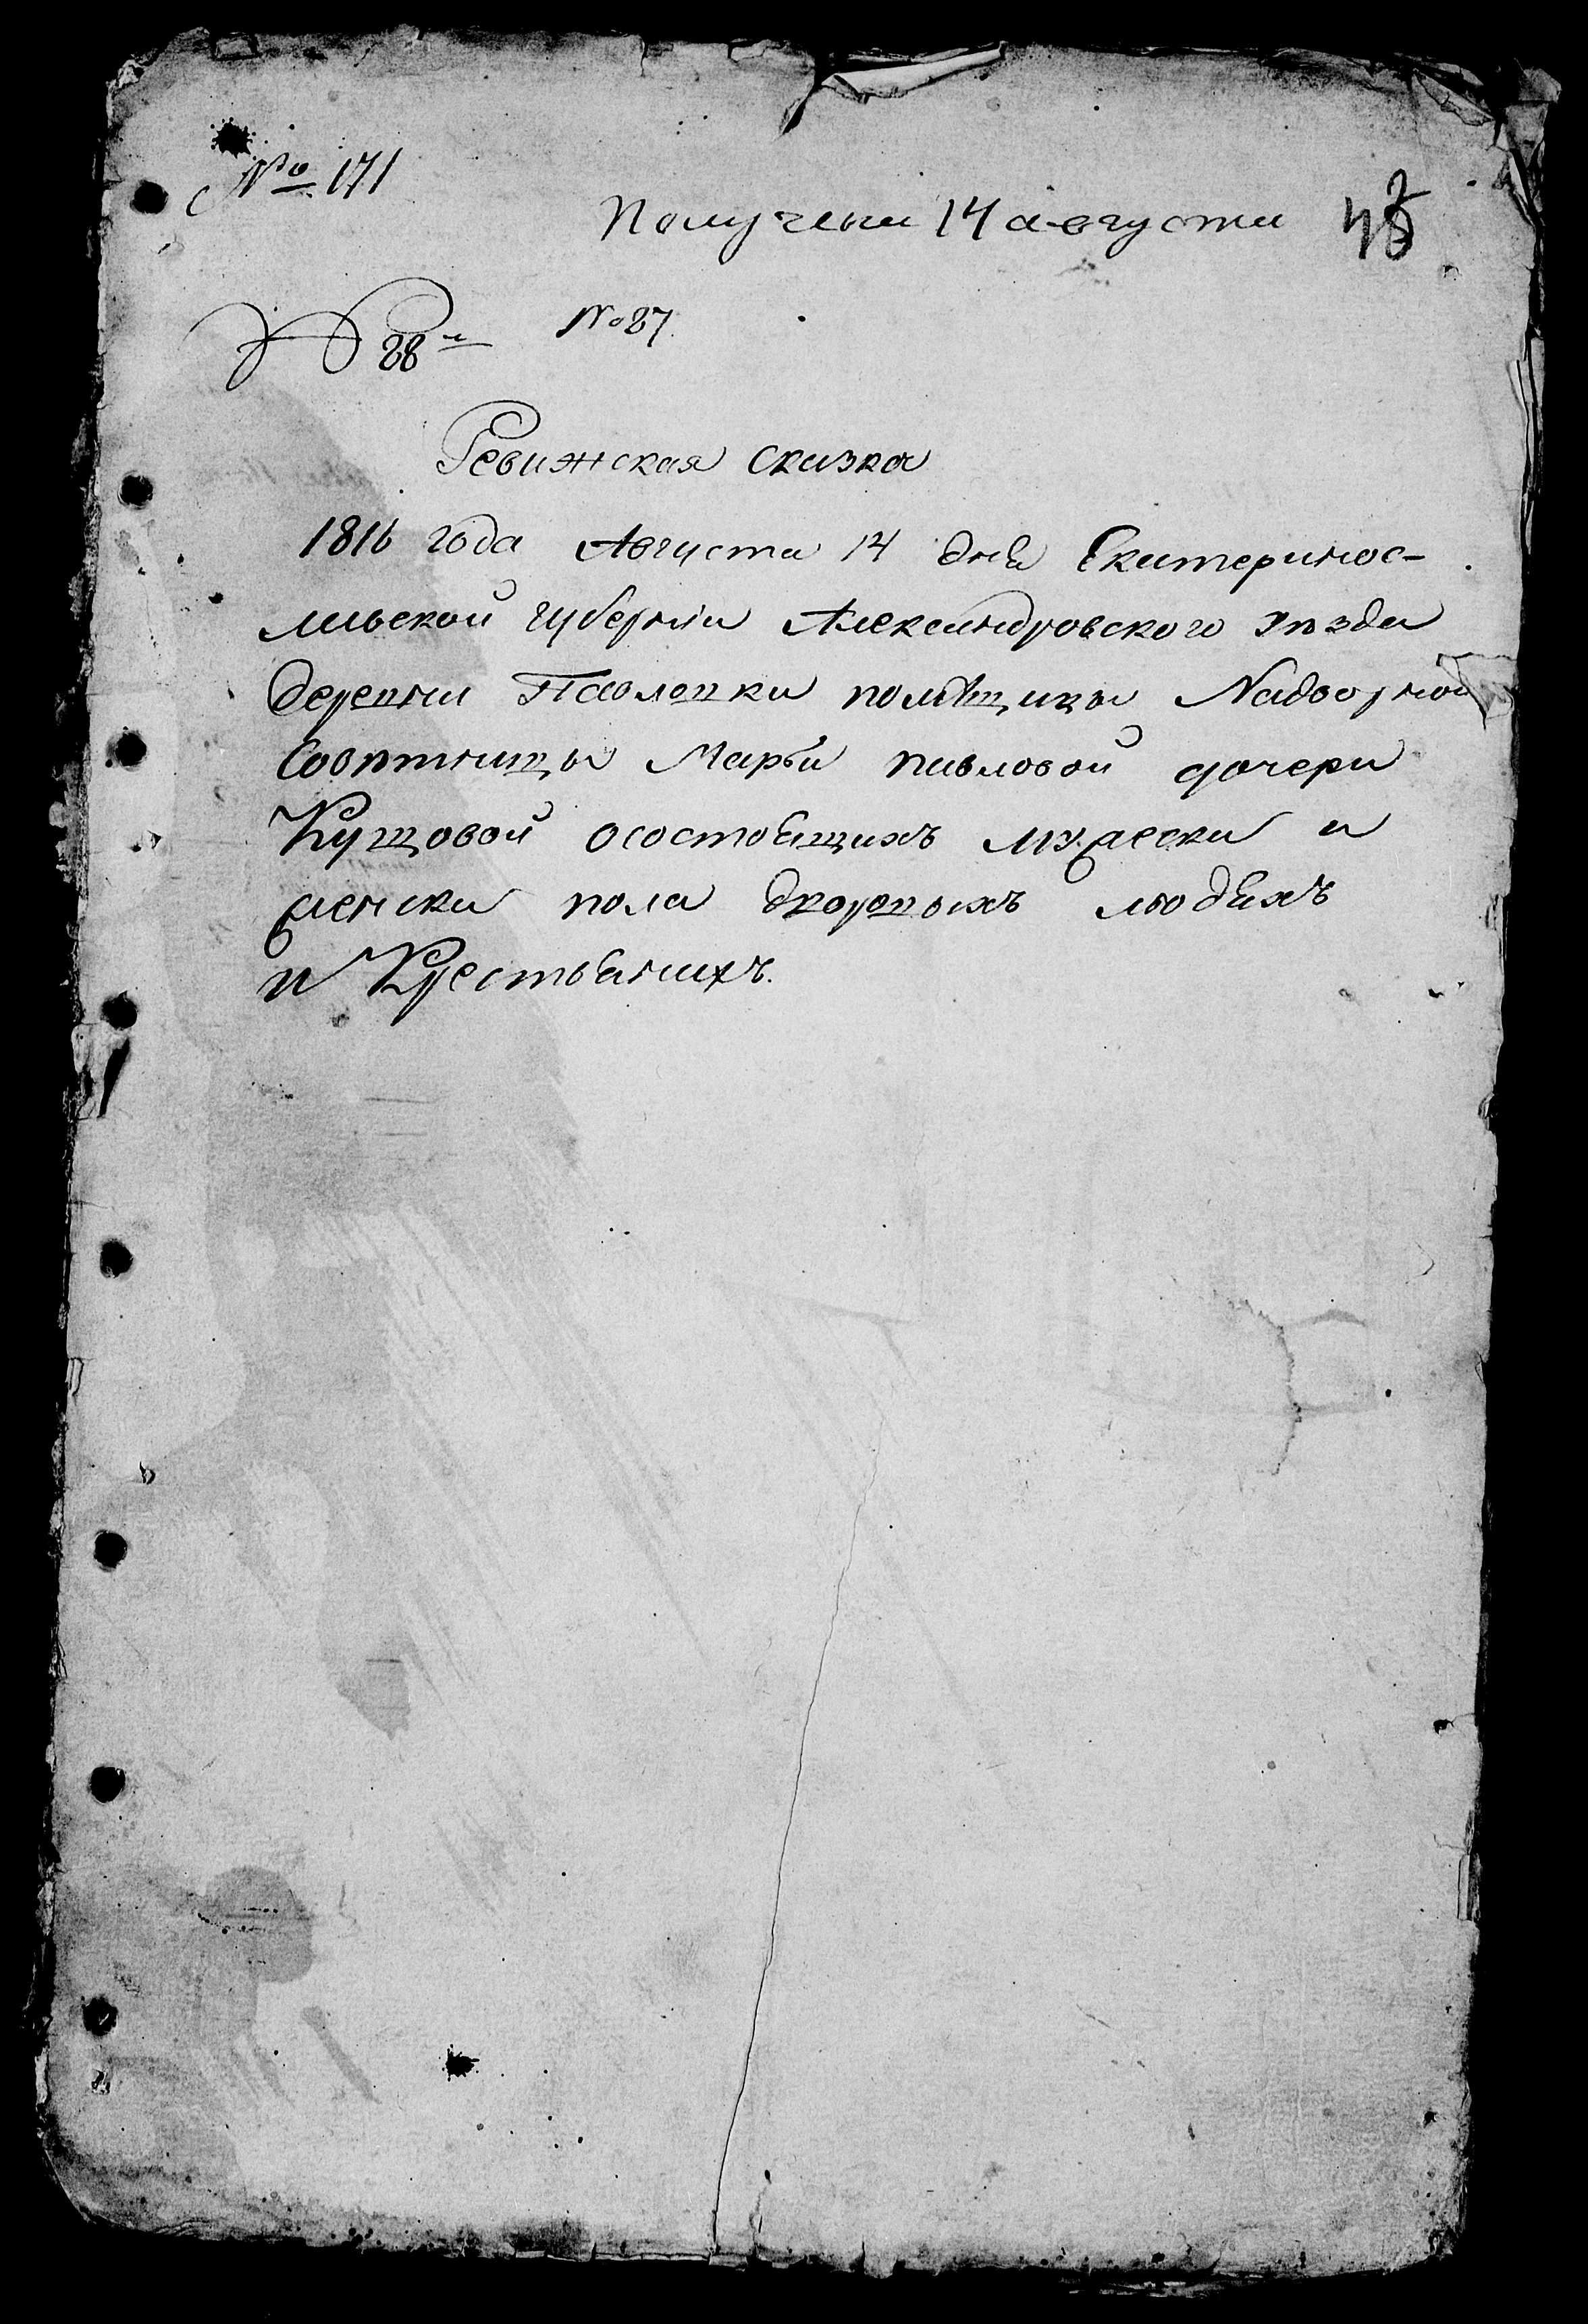 № 171
Получена 14 августа
88
№ 87
Ревижская сказка
1816 года Августа 14 дня Екатеринос-
лавской губернии Александровского уѣзда
деревни Павловки помѣщицы Надворной
совѣтницы Марьи павловой дочери
Кущовой осостоящихъ мужеска и
женска пола дворовыхъ людяхъ
и Крестьянихъ.